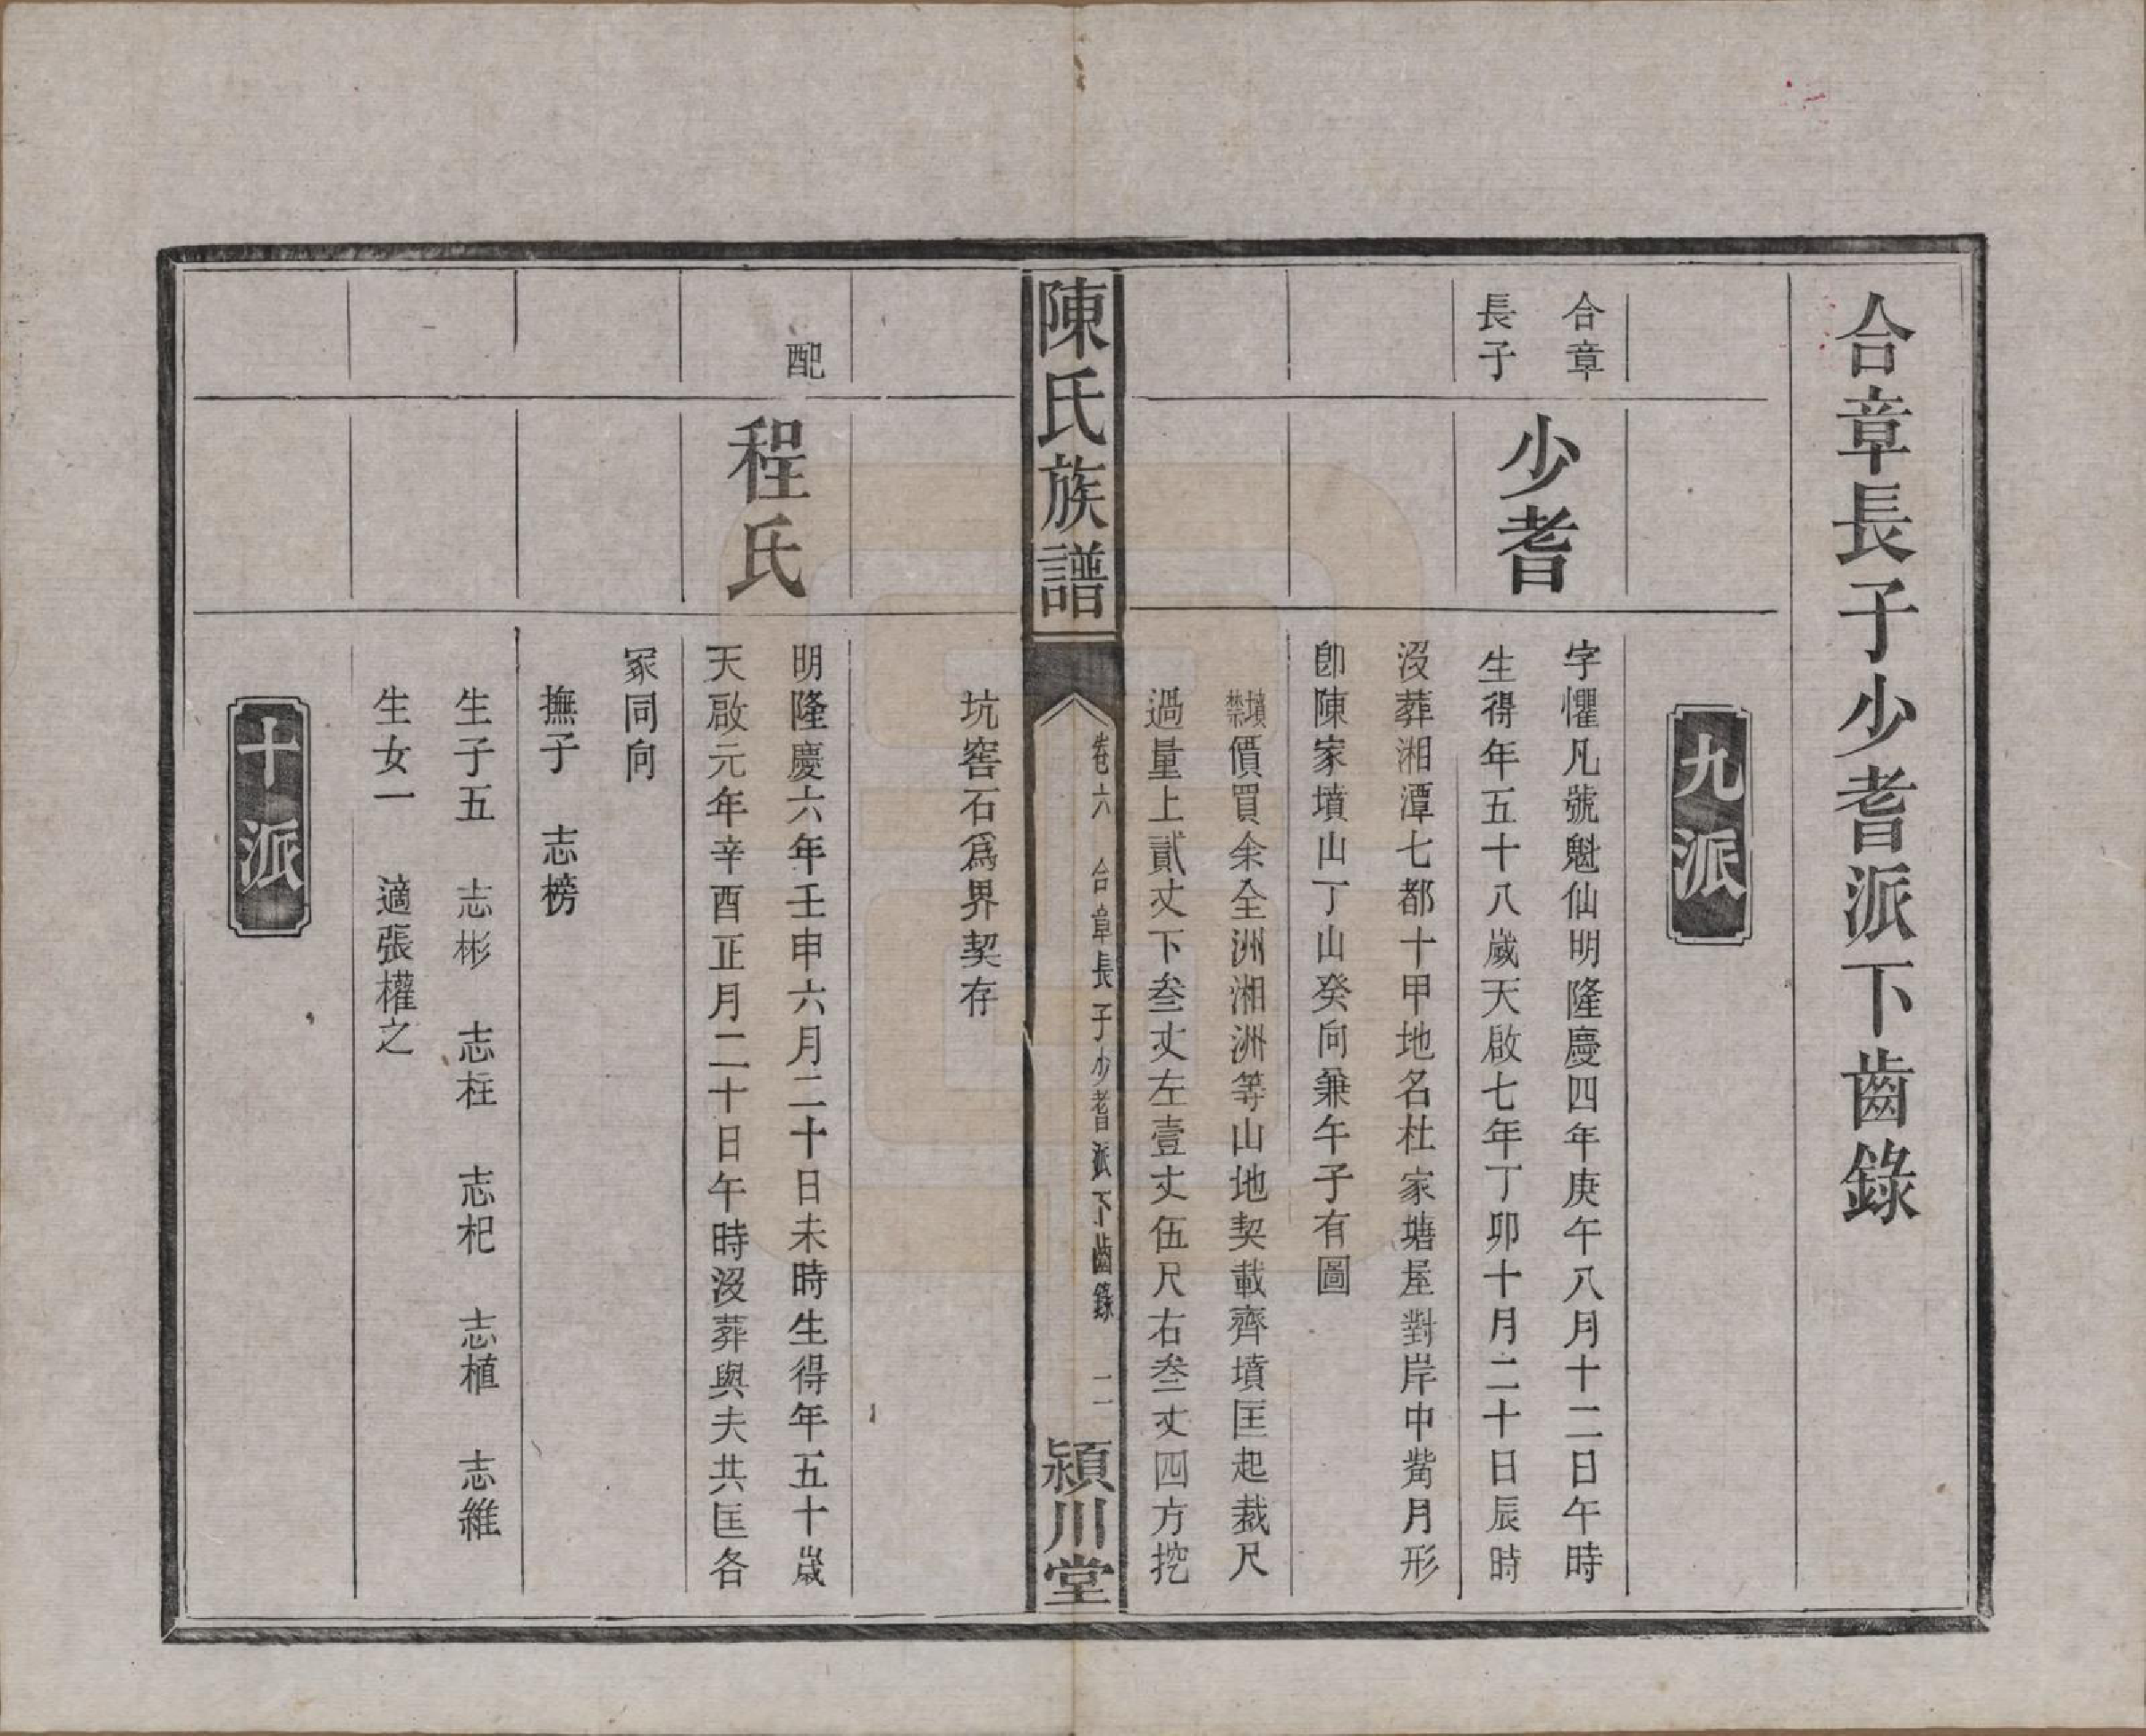 合章長子少耆派下齒錄
九派
合章
長子
少耆
字懼凡號魁仙明隆慶四年庚午八月十二日午時
生得年五十八歲天啟七年丁卯十月二十日辰時
沒葬湘潭七都十甲地名杜家塘屋對岸中觜月形
卽陳家墳山丁山癸向兼午子有圖
墳禁價買余全洲湘洲等山地契載齊墳匡起裁尺
過量上貳丈下叁丈左壹丈伍尺右叁丈四方挖
陳氏族譜
卷六 合章長子少耆派下齒錄 二
潁川堂
坑窖石爲界契存
配
程氏
明隆慶六年壬申六月二十日未時生得年五十歲
天啟元年辛酉正月二十日午時沒葬與夫共匡各
冢同向
撫子 志榜
生子五 志彬 志枉 志杞 志植 志維
生女一 適張權之
十派